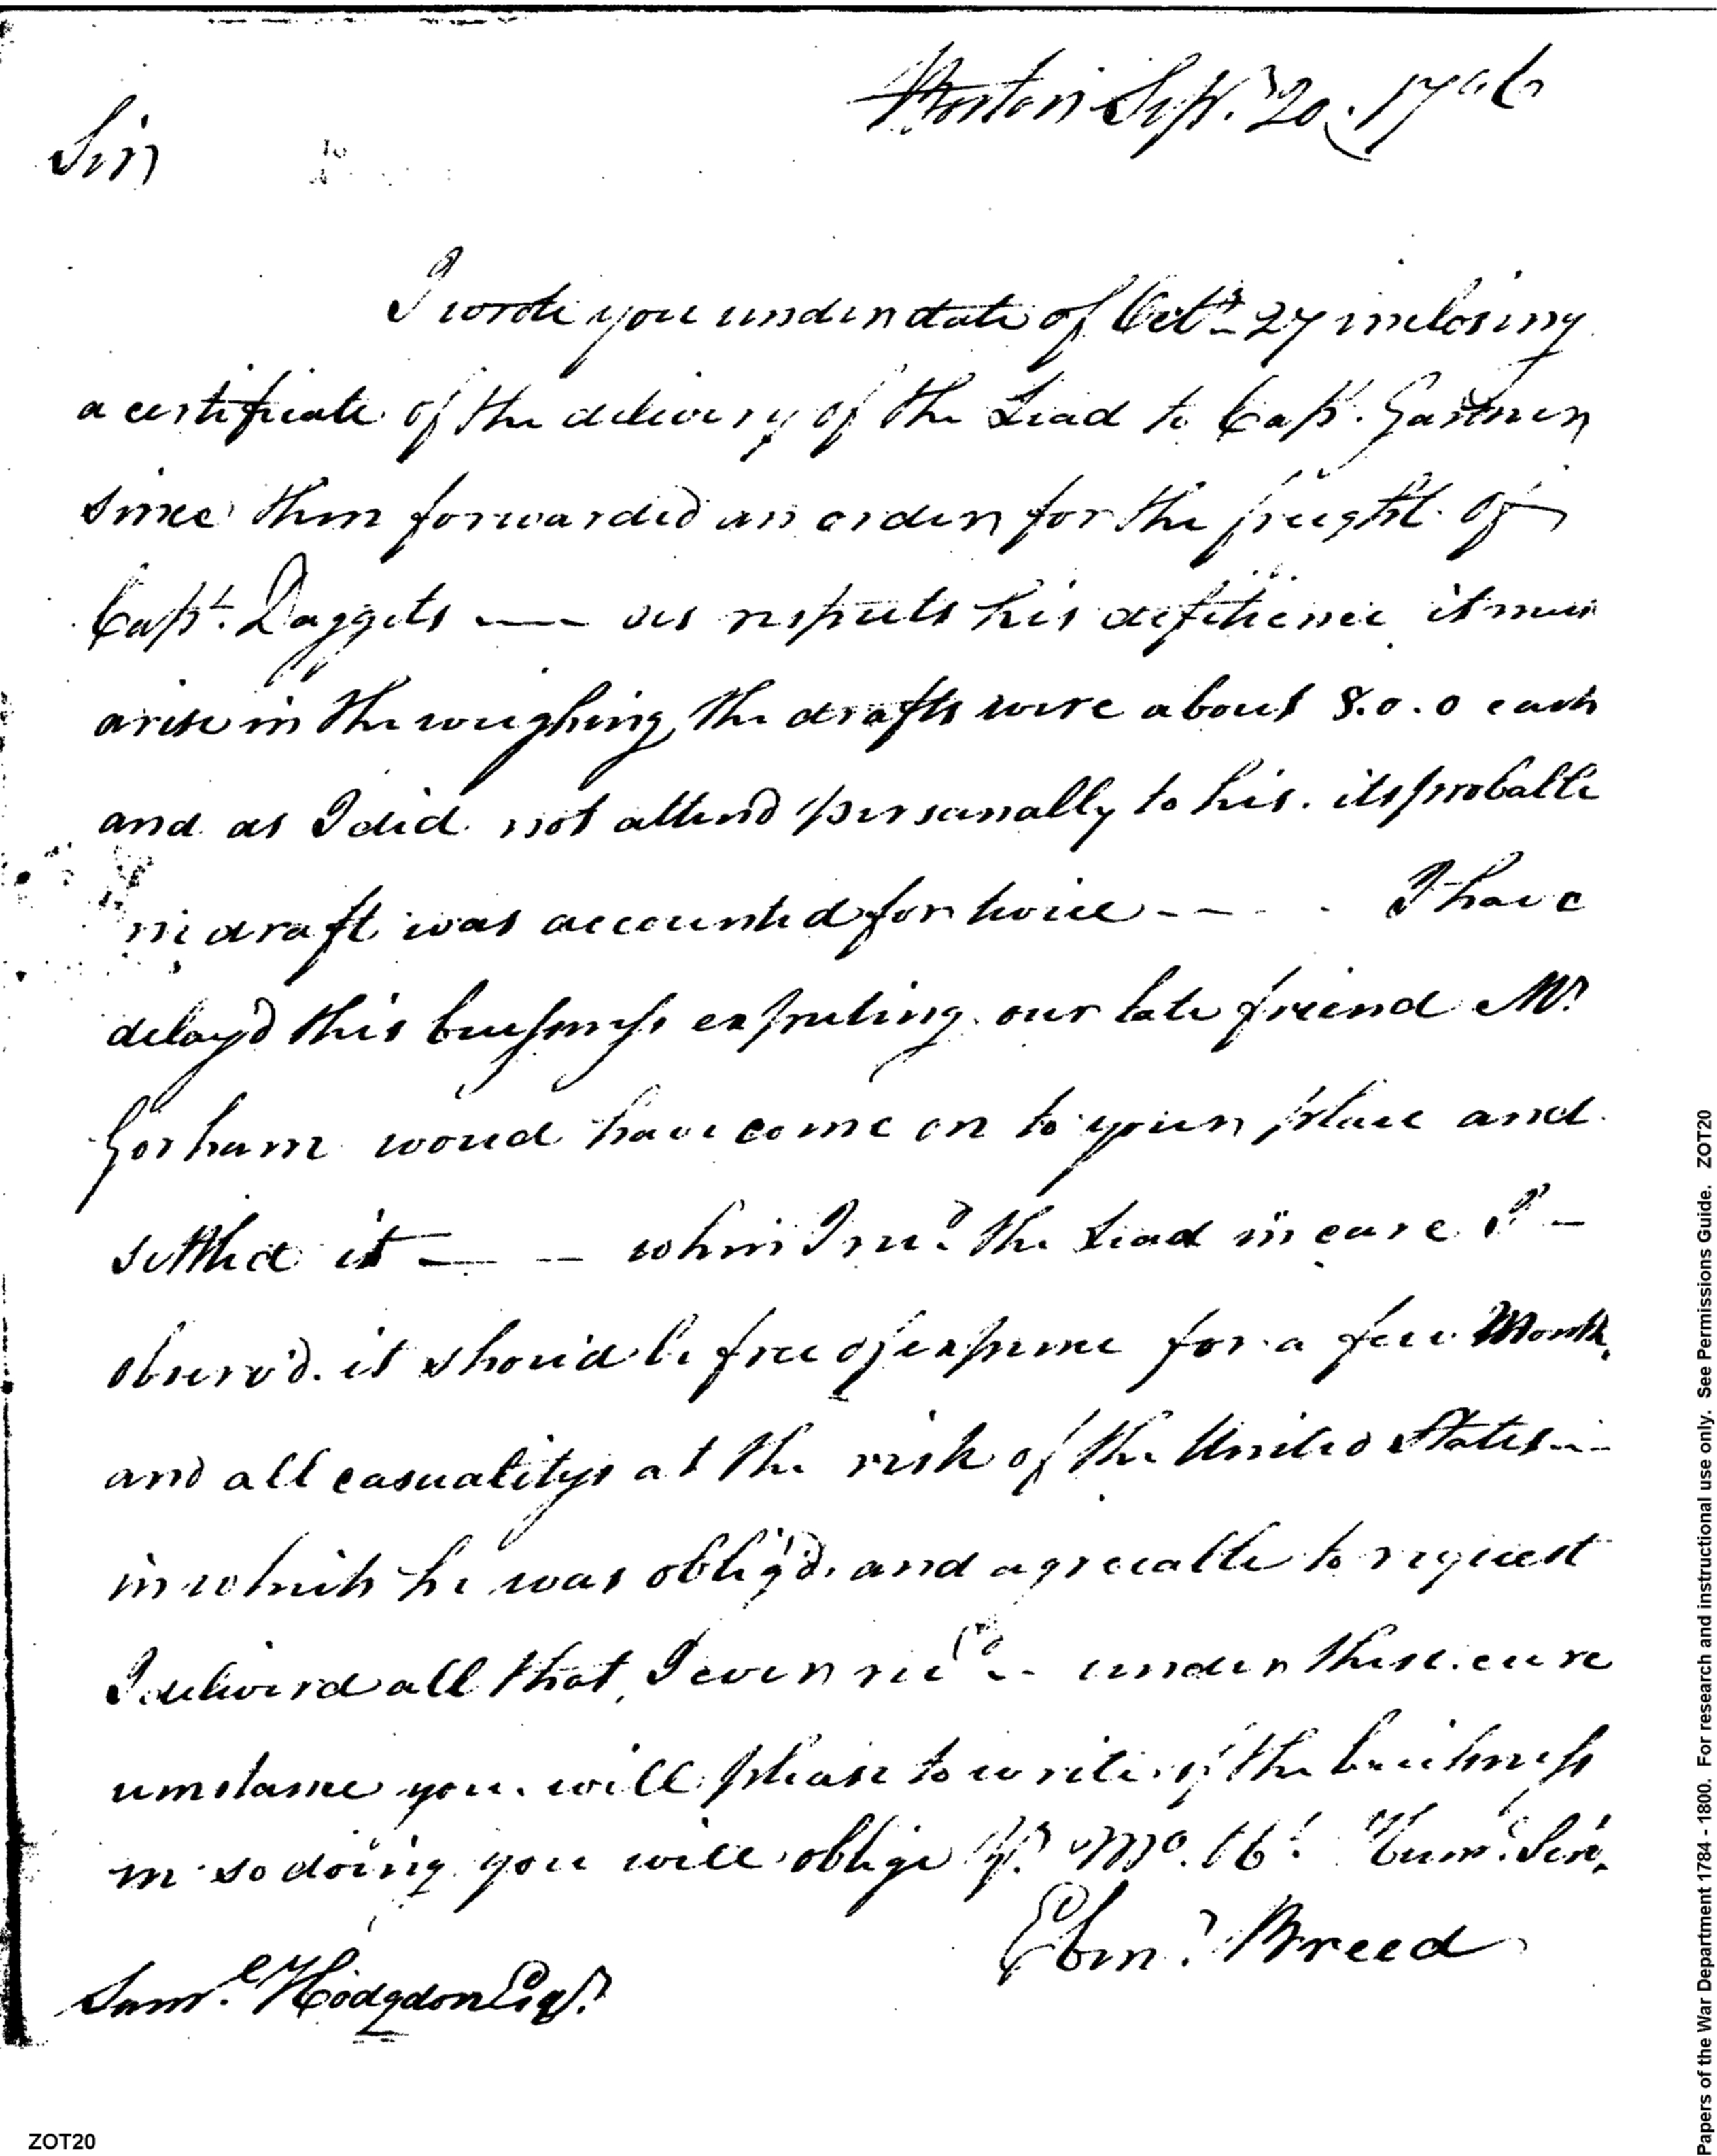 Boston Sepr. 20. 1796
Sir
I wrote you under date of Octr 27 inclosing
a certificate of the delivery of the Lead to Capt. Gardner
since then forwarded an order for the freight of
Capt. Daggets — as respects his defitience it must
arise in the weighing, the drafts were about 8.0.0 each
and as I did not attend personally to his. its probable
draft was accounted for twice - - - - I have
delay'd this bussiness expecting our late friend Mr
Gorham woud have come on to your place and
settled it — — when I recd. the Lead in care I —
observ'd. it shou'd be free of expence for a few Months
and all casualitys at the risk of the United States - -
in which he was oblig'd, and agreeable to request
I deliverd all that I ever recd - - under these circ
umstance you will please to write of the buisness
in so doing you will oblige yr. Mo. Ob. Humb. Serv.
Ebenr. Breed
Saml. Hodgdon Esqr.
Papers of the War Department 1784 - 1800. For research and instructional use only. See Permissions Guide. ZOT20
ZOT20